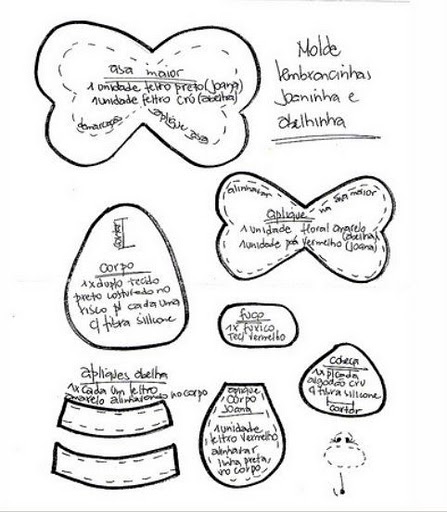 Molde
lembrancinhas
Joaninha e
abelhinha
asa maior
1 unidade feltro preto (Joana)
1 unidade feltro crú (abelha)
demarcação aplique asa
alinhavar na asa maior
aplique
1 unidade floral amarelo
(abelha)
1 unidade poá vermelho (Joana)
cortar
corpo
1x duplo tecido
preto costurado no
risco p/ cada uma
c/ fibra silicone
fuço
1x fuxico
tec/ vermelho
cabeça
1x p/ cada
algodão crú
c/ fibra silicone
cortar
apliques abelha
1x cada um feltro
amarelo alinhavando no corpo
aplique
corpo
Joana
1 unidade
feltro vermelho
alinhavar
linha preta,
no corpo